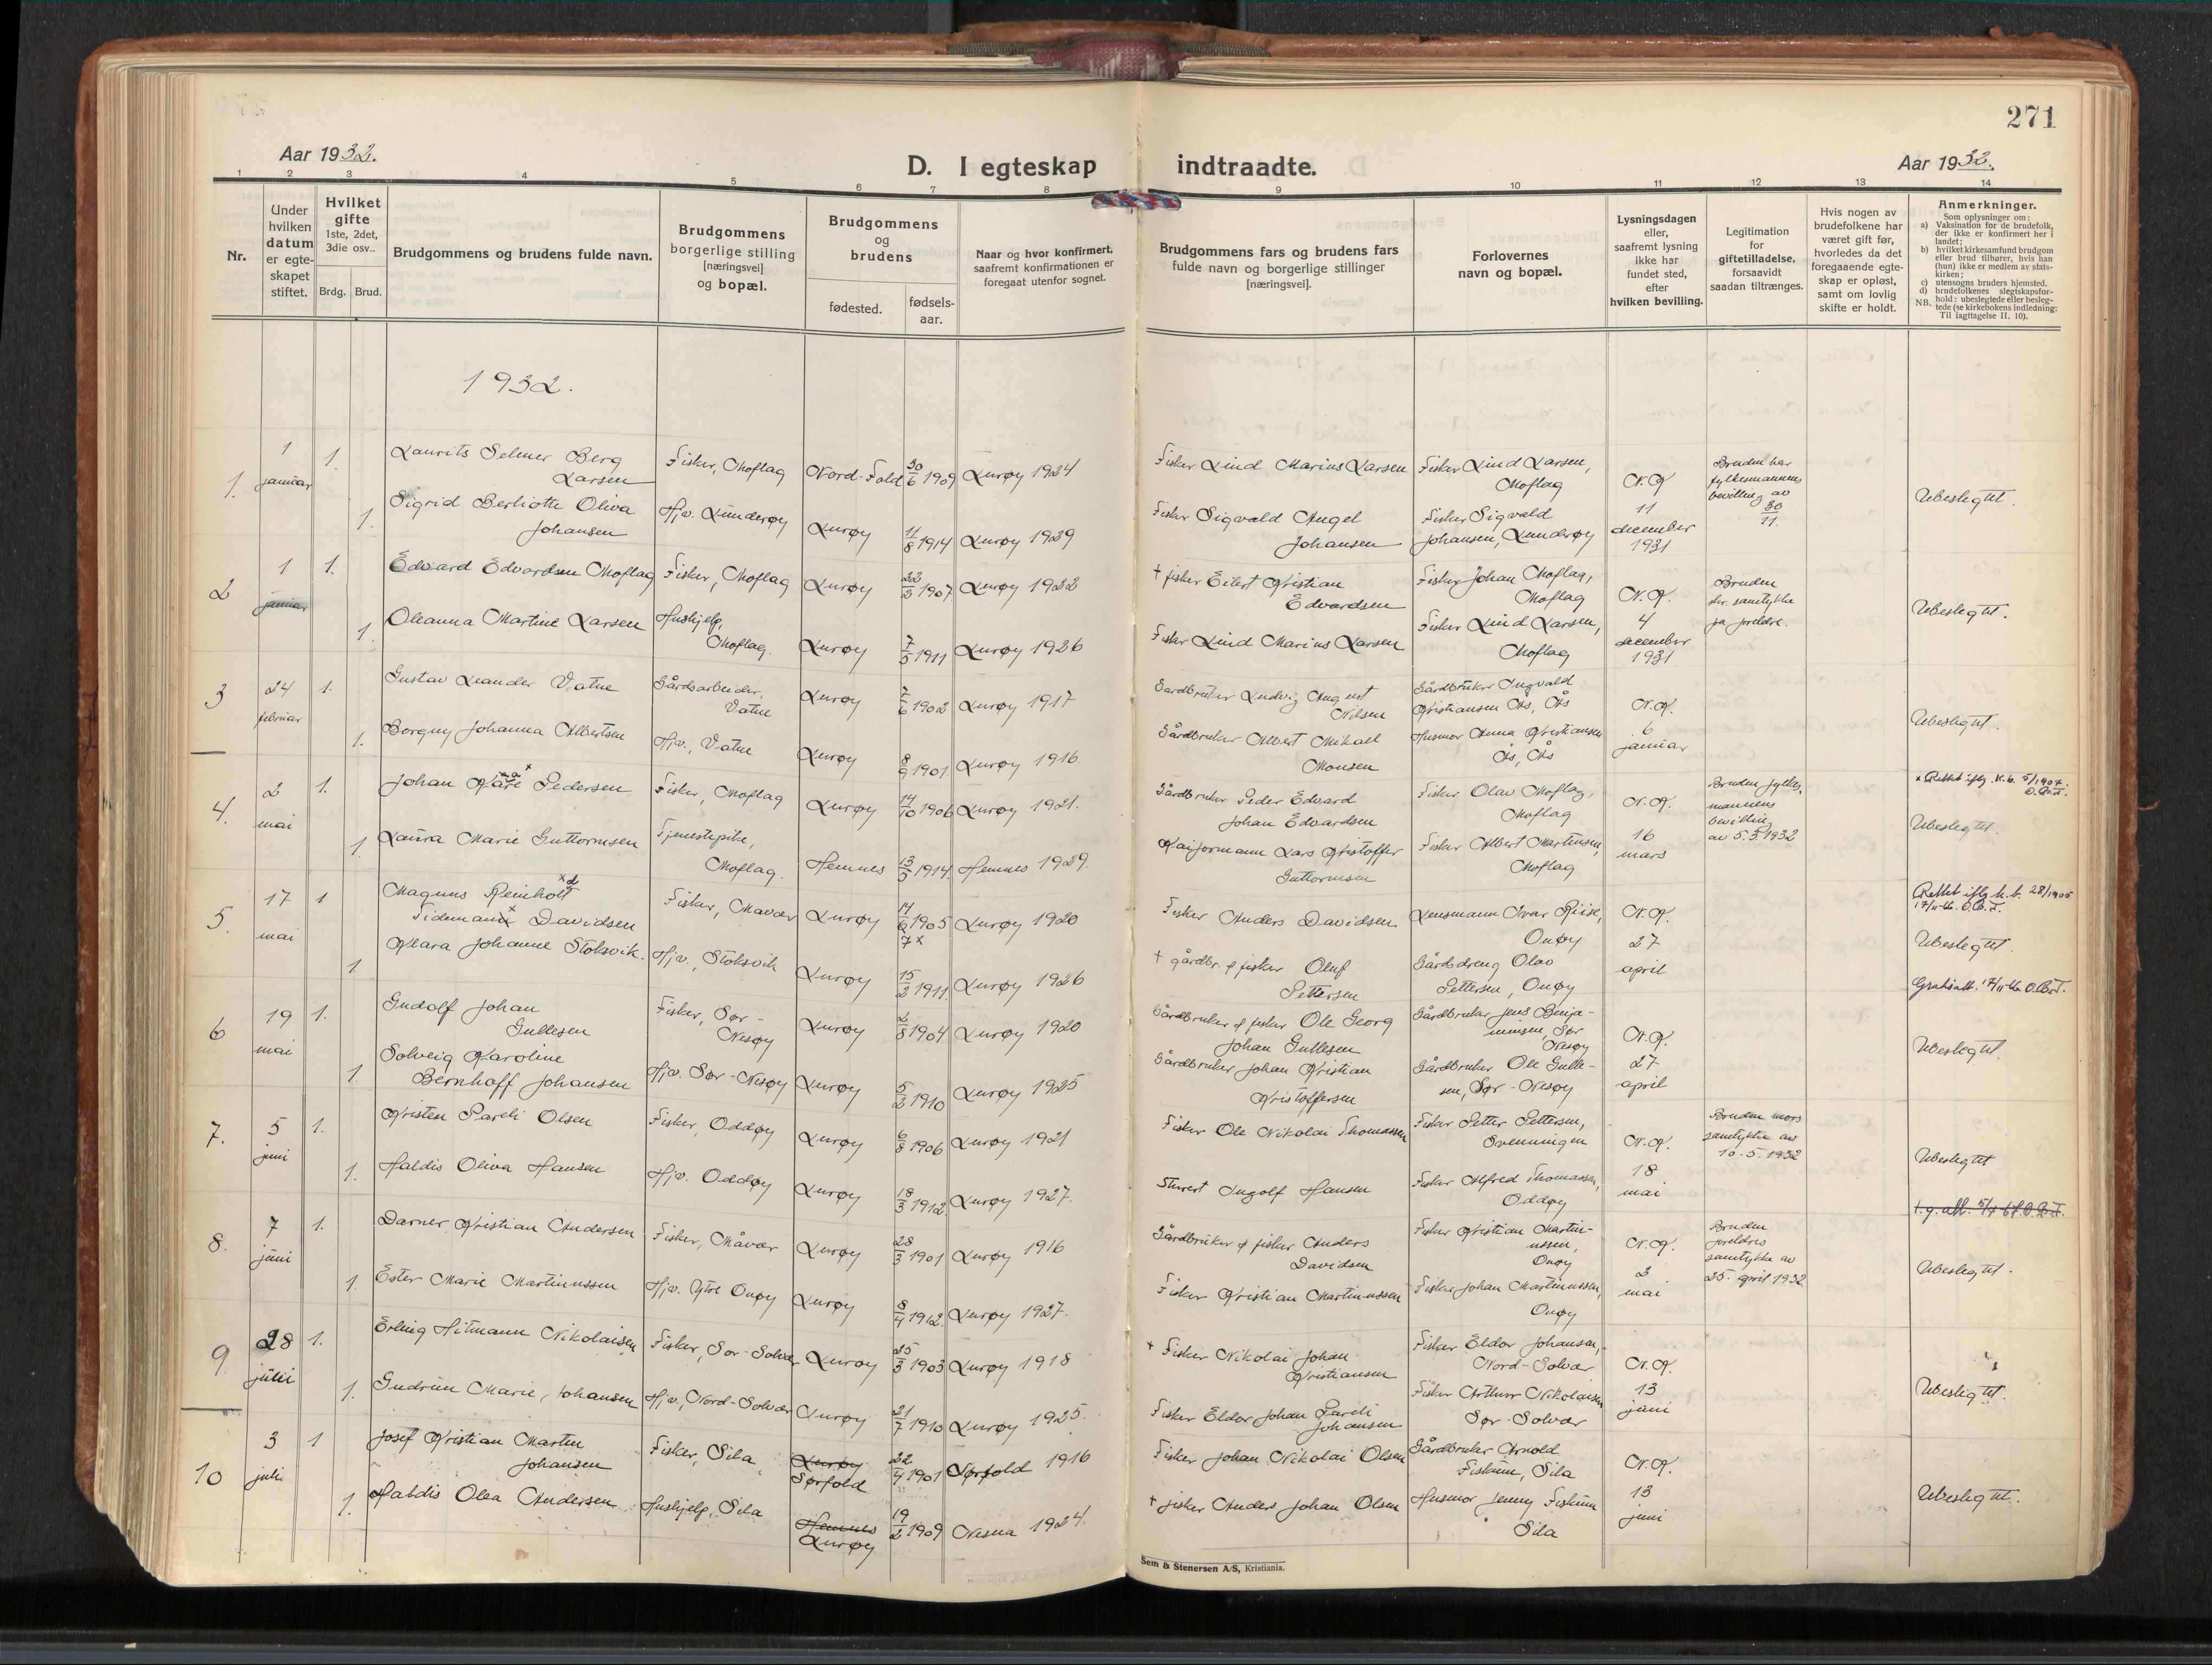 271
Aar 1932.
D. I egteskap indtraadte.
Aar 1932.
1 2 3 4 5 6 7 8 9 10 11 12 13 14
Nr.
Under hvilken datum er egte-skapet stiftet.
Hvilket gifte 1ste, 2det, 3die osv..
Brdg. Brud.
Brudgommens og brudens fulde navn.
Brudgommens borgerlige stilling [næringsvei] og bopæl.
Brudgommens og brudens
fødested.
fødsels-aar.
Naar og hvor konfirmert, saafremt konfirmationen er foregaat utenfor sognet.
Brudgommens fars og brudens fars fulde navn og borgerlige stillinger [næringsvei].
Forlovernes navn og bopæl.
Lysningsdagen eller, saafremt lysning ikke har fundet sted, efter hvilken bevilling.
Legitimation for giftetilladelse, forsaavidt saadan tiltrænges.
Hvis nogen av brudefolkene har været gift før, hvorledes da det foregaaende egte-skap er opløst, samt om lovlig skifte er holdt.
Anmerkninger.
Som oplysninger om:
a) Vaksination for de brudefolk, der ikke er konfirmert her i landet;
b) hvilket kirkesamfund brudgom eller brud tilhører, hvis han (hun) ikke er medlem av stats-kirken;
c) utensogns bruders hjemsted.
d) brudefolkenes slegtskapsfor-hold: ubeslegtede eller besleg-tede (se kirkebokens indledning: Til iagttagelse II. 10).
NB.
1932.
1. 1 januar 1. Laurits Selmer Berg Larsen Fisker, Moflag Nord-Fold 30/6 1909 Lurøy 1924 Fisker Lind Marius Larsen Fisker Lind Larsen, Moflag N.K. 11 december 1931 Bruden har fylkesmannens bevilling av 30/11. Ubeslegtet.
1. Sigrid Berliotte Oliva Johansen Hjv. Lunderøy Lurøy 11/8 1914 Lurøy 1929 Fisker Sigvald Angel Johansen Fisker Sigvald Johansen, Lunderøy
2 1 januar 1. Edvard Edvardsen Moflag Fisker, Moflag Lurøy 22/2 1907 Lurøy 1922 † fisker Eilert Kristian Edvardsen Fisker Johan Moflag, Moflag N.K. 4 december 1931 Bruden skr. samtykke fra foreldre. Ubeslegtet.
1. Oleanna Martine Larsen Hushjelp, Moflag. Lurøy 7/5 1911 Lurøy 1926 Fisker Lind Marius Larsen Fisker Lind Larsen, Moflag
3 24 februar 1. Gustav Leander Vatne Gårdsarbeider, Vatne Lurøy 7/6 1902 Lurøy 1917 Gardbruker Ludvig August Nilsen Gårdbruker Ingvald Kristiansen Ås, Ås N.K. 6 januar Ubeslegtet.
1. Borgny Johanna Albertsen Hjv., Vatne Lurøy 8/9 1901. Lurøy 1916. Gårdbruker Albert Mikael Monsen Husmor Anna Kristiansen Ås, Ås
4. 2 mai 1. Johan Kare Pedersen Fisker, Moflag Lurøy 14/10 1906 Lurøy 1921. Gårdbruker Peder Edvard Johan Edvardsen Fisker Olav Moflag, Moflag N.K. 16 mars Bruden fylkesmannens bevilling av 5.3.1932 x Rettet iflg. k.b. 5/1907. O.B.T. Ubeslegtet.
1. Laura Marie Guttormsen Tjenestepike, Moflag. Hemnes 13/5 1914. Hemnes 1929. Kaiformann Lars Kristoffer Guttormsen Fisker Albert Martinsen, Moflag
5. 17 mai 1 Magnus Reinholt xd Tidemann x Davidsen Fisker, Mavær Lurøy 14/6 1905 7x Lurøy 1920 Fisker Anders Davidsen Lensmann Ivar Riise, Onøy N.K. 27 april Rettet iflg. k.b. 28/1905 17/11-66. O.B.T. Ubeslegtet.
1 Klara Johanne Stoksvik. Hjv., Stoksvik Lurøy 15/2 1911. Lurøy 1926 † gårdbr. & fisker Oluf Pettersen Gårdsdreng Olav Pettersen, Onøy Gratisatt. 17/11-66 O.B.T.
6 19 mai 1. Gudolf Johan Gullesen Fisker, Sør-Nesøy Lurøy 2/8 1904 Lurøy 1920 Gårdbruker & fisker Ole Georg Johan Gullesen Gårdbruker Jens Benja-minsen, Sør Nesøy N.K. 27 april Ubeslegtet.
1. Solveig Karoline Bernhoff Johansen Hjv. Sør-Nesøy Lurøy 5/2 1910 Lurøy 1925 Gårdbruker Johan Kristian Kristoffersen Gårdbruker Ole Gulle-sen, Sør-Nesøy
7. 5 juni 1. Kristen Pareli Olsen Fisker, Oddøy Lurøy 6/8 1906 Lurøy 1921 Fisker Ole Nikolai Thomassen Fisker Petter Pettersen, Svenningen N.K. 18 mai Bruden mors samtykke av 10.5.1932 Ubeslegtet
1. Haldis Oliva Hansen Hjv. Oddøy Lurøy 18/3 1912. Lurøy 1927. Stuert Ingolf Hansen Fisker Alfred Thomassen, Oddøy
8. 7 juni 1. Darner Kristian Andersen Fisker, Måvær Lurøy 28/3 1901 Lurøy 1916 Gårdbruker & fisker Anders Davidsen Fisker Kristian Martin-ussen, Onøy N.K. 2 mai Bruden foreldres samtykke av 25. april 1932. Ubeslegtet.
1. Ester Marie Martinussen Hjv. Ytre Onøy Lurøy 8/4 1912. Lurøy 1927. Fisker Kristian Martinussen Fisker Johan Martinussen, Onøy
9 28 julii 1. Erling Hitmann Nikolaisen Fisker, Sør-Solvær Lurøy 25/3 1903 Lurøy 1918 † Fisker Nikolai Johan Kristiansen Fisker Eldor Johansen, Nord-Solvær N.K. 13 juni Ubeslegtet.
1. Gudrun Marie Johansen Hjv., Nord-Solvær Lurøy 21/7 1910 Lurøy 1925. Fisker Eldor Johan Pareli Johansen Fisker Arthur Nikolaisen Sør-Solvær
10 3 juli 1 Josef Kristian Martin Johansen Fisker, Sila Lurøy Sørfold 22/4 1901 Sørfold 1916 Fisker Johan Nikolai Olsen Gårdbruker Arnold Fiskum, Sila N.K. 13 juni Ubeslegtet.
1. Haldis Olea Andersen Hushjelp, Sila Hemnes Lurøy 19/2 1909 Nesna 1924. † fisker Anders Johan Olsen Husmor Jenny Fiskum Sila
Sem & Stenersen A/S, Kristiania.